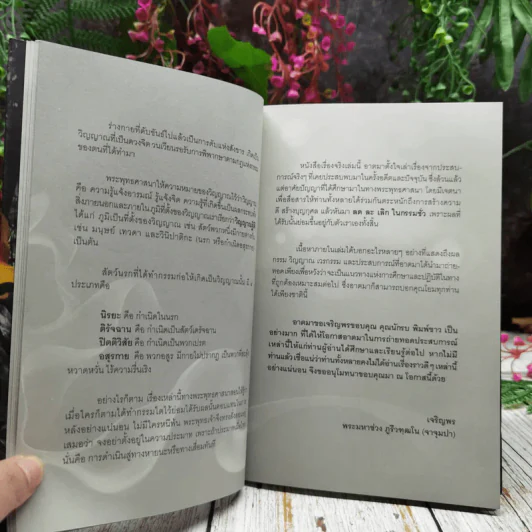 ร่างกายที่ดับขันธ์ไปแล้วเป็นการดับแห่งสังขาร เกิดเป็น
วิญญาณที่เป็นดวงจิต วนเวียนรอรับการพิพากษาตามรูปแห่งกรรม
ของตนที่ได้ทำมา
พระพุทธศาสนาให้ความหมายของวิญญาณไว้ว่า วิญญาณ
คือ ความรู้แจ้งอารมณ์ รู้แจ้งจิต
ได้แก่ ภูมิเป็นที่ตั้งของวิญญาณ เช่น สัตว์
เช่น มนุษย์ เทวดา และวินิปาติกะ (นรก หรือกำเนิดอสุรกาย)
เป็นต้น
สัตว์นรกที่ได้ทำกรรมก่อให้เกิดเป็นวิญญาณนั้น มี ๔
ประเภทคือ
นิรยะ คือ กำเนิดในนรก
ติรัจฉาน คือ กำเนิดเป็นสัตว์เดรัจฉาน
ปิตติวิสัย คือ กำเนิดเป็นพวกเปรต
อสุรกาย คือ พวกอสูร มีกายไม่ปรากฏ เป็นพวกที่
หวาดหวั่น ไร้ความรื่นเริง
อย่างไรก็ตาม เรื่องเหล่านี้ทางพระพุทธศาสนาสอนให้รู้ว่า
เมื่อใครก็ตามได้ทำกรรมใดไว้ย่อมได้รับผลนั้นตอบแทน
หลังอย่างแน่นอน ไม่มีใครหนีพ้น พระพุทธเจ้าจึงทรงตรัส
เสมอว่า จงอย่าตั้งอยู่ในความประมาท เพราะถ้าประมาท
นั่นคือ การดำเนินสู่ทางหายนะหรือทางเสื่อมทันที
หนังสือเรื่องจริงเล่มนี้ อาตมาตั้งใจเล่าเรื่องจากประสบ-
การณ์จริงๆ ที่เคยประสบพบมาในครั้งอดีตและปัจจุบัน ซึ่งล้วนแล้ว
แต่อาศัยปัญญาที่ได้ศึกษามาในทางพระพุทธศาสนา โดยมีเจตนา
เพื่อสื่อสารให้ท่านทั้งหลายได้ร่วมกันตระหนักถึงการสร้างความ
ดี สร้างบุญกุศล แล้วหันมา ลด ละ เลิก ในกรรมชั่ว เพราะผลที่
ได้รับนั้นย่อมขึ้นอยู่กับตัวเราเองทั้งสิ้น
เนื้อหาภายในเล่มได้บอกอะไรหลายๆ อย่างที่แสดงถึงผล
กรรม วิญญาณ เวรกรรม และประสบการณ์ที่อาตมาได้นำมาถ่าย-
ทอดเพียงเพื่อหวังว่าจะเป็นแนวทางแห่งการศึกษาและปฏิบัติในทาง
ที่ถูกต้องเหมาะสมต่อไป ซึ่งอาตมาก็สามารถบอกคุณโยมทุกท่าน
ได้เพียงชาตินี้
อาตมาขอเจริญพรขอบคุณ คุณนักรบ พิมพ์ขาว เป็น
อย่างมาก ที่ได้ให้โอกาสอาตมาในการถ่ายทอดประสบการณ์
เหล่านี้ให้แก่ท่านผู้อ่านได้ศึกษาและเรียนรู้ต่อไป หากไม่มี
ท่านแล้ว เชื่อแน่ว่าท่านทั้งหลายคงไม่ได้อ่านเรื่องราวดีๆ เหล่านี้
อย่างแน่นอน จึงขออนุโมทนาขอบคุณมา ณ โอกาสนี้ด้วย
เจริญพร
พระมหาช่วง ฐิรวฑฺฒโน (จาจุมปา)